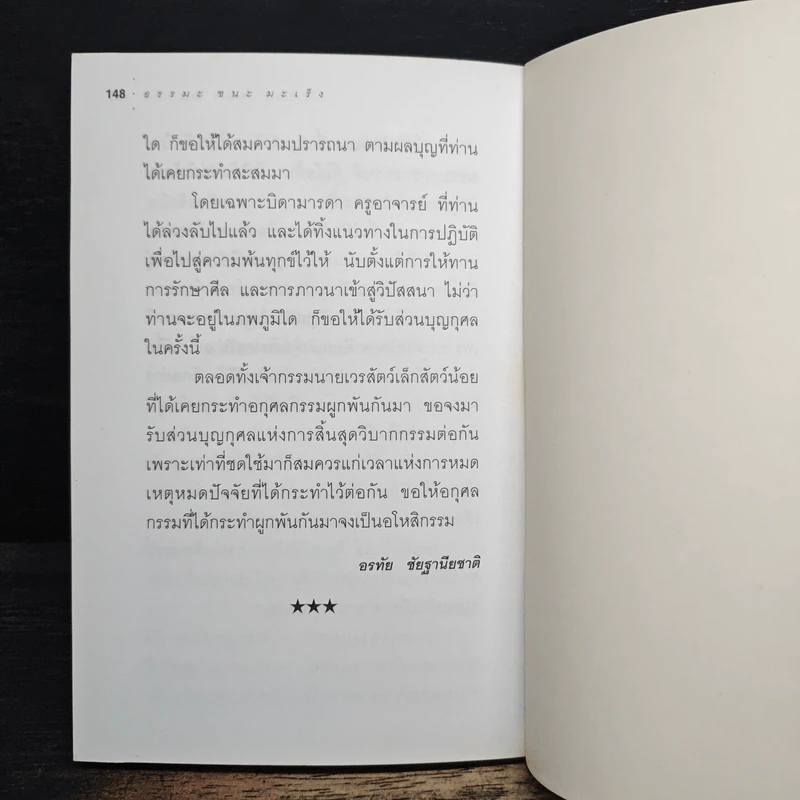 148 ธรรมะ ชนะ มะเร็ง
ใด ก็ขอให้ได้สมความปรารถนา ตามผลบุญที่ท่าน
ได้เคยกระทำสะสมมา
โดยเฉพาะบิดามารดา ครูอาจารย์ ที่ท่าน
ได้ล่วงลับไปแล้ว และได้ทิ้งแนวทางในการปฏิบัติ
เพื่อไปสู่ความพ้นทุกข์ไว้ให้ นับตั้งแต่การให้ทาน
การรักษาศีล และการภาวนาเข้าสู่วิปัสสนา ไม่ว่า
ท่านจะอยู่ในภพภูมิใด ก็ขอให้ได้รับส่วนบุญกุศล
ในครั้งนี้
ตลอดทั้งเจ้ากรรมนายเวรสัตว์เล็กสัตว์น้อย
ที่ได้เคยกระทำอกุศลกรรมผูกพันกันมา ขอจงมา
รับส่วนบุญกุศลแห่งการสิ้นสุดวิบากกรรมต่อกัน
เพราะเท่าที่ชดใช้มาก็สมควรแก่เวลาแห่งการหมด
เหตุหมดปัจจัยที่ได้กระทำไว้ต่อกัน ขอให้อกุศล
กรรมที่ได้กระทำผูกพันกันมาจงเป็นอโหสิกรรม
อรทัย ชัยฐานียชาติ
★★★